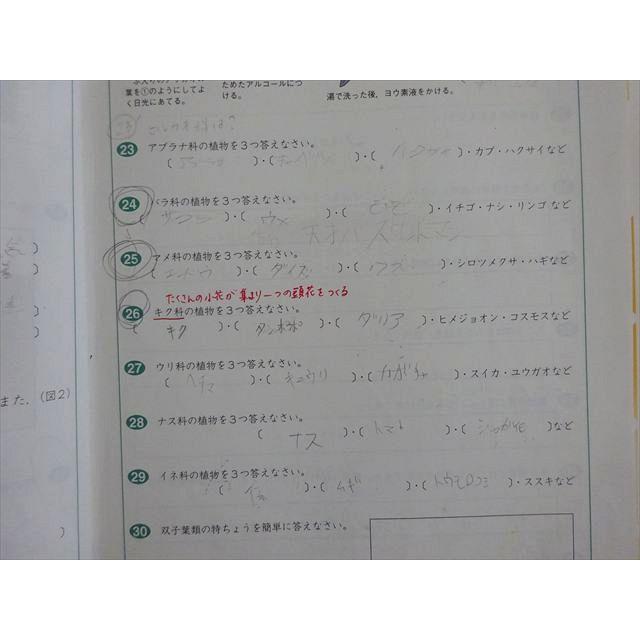 葉を①のようにしてよ
く日光にあてる。
ためたアルコールにつ
ける。
湯で洗った後，ヨウ素液をかける。
23 アブラナ科の植物を3つ答えなさい。
( )・( )・( )・カブ・ハクサイなど
24 バラ科の植物を3つ答えなさい。
( サクラ )・( ウメ )・( )・イチゴ・ナシ・リンゴ など
25 マメ科の植物を3つ答えなさい。
( エンドウ )・( ダイズ )・( )・シロツメクサ・ハギなど
たくさんの小花が集まり一つの頭花をつくる
26 キク科の植物を3つ答えなさい。
( キク )・( タンポポ )・( ダリア )・ヒメジョオン・コスモスなど
27 ウリ科の植物を3つ答えなさい。
( ヘチマ )・( キュウリ )・( カボチャ )・スイカ・ユウガオなど
28 ナス科の植物を3つ答えなさい。
( ナス )・( トマト )・( )など
29 イネ科の植物を3つ答えなさい。
( )・( ムギ )・( トウモロコシ )・ススキなど
30 双子葉類の特ちょうを簡単に答えなさい。
また，(図2)